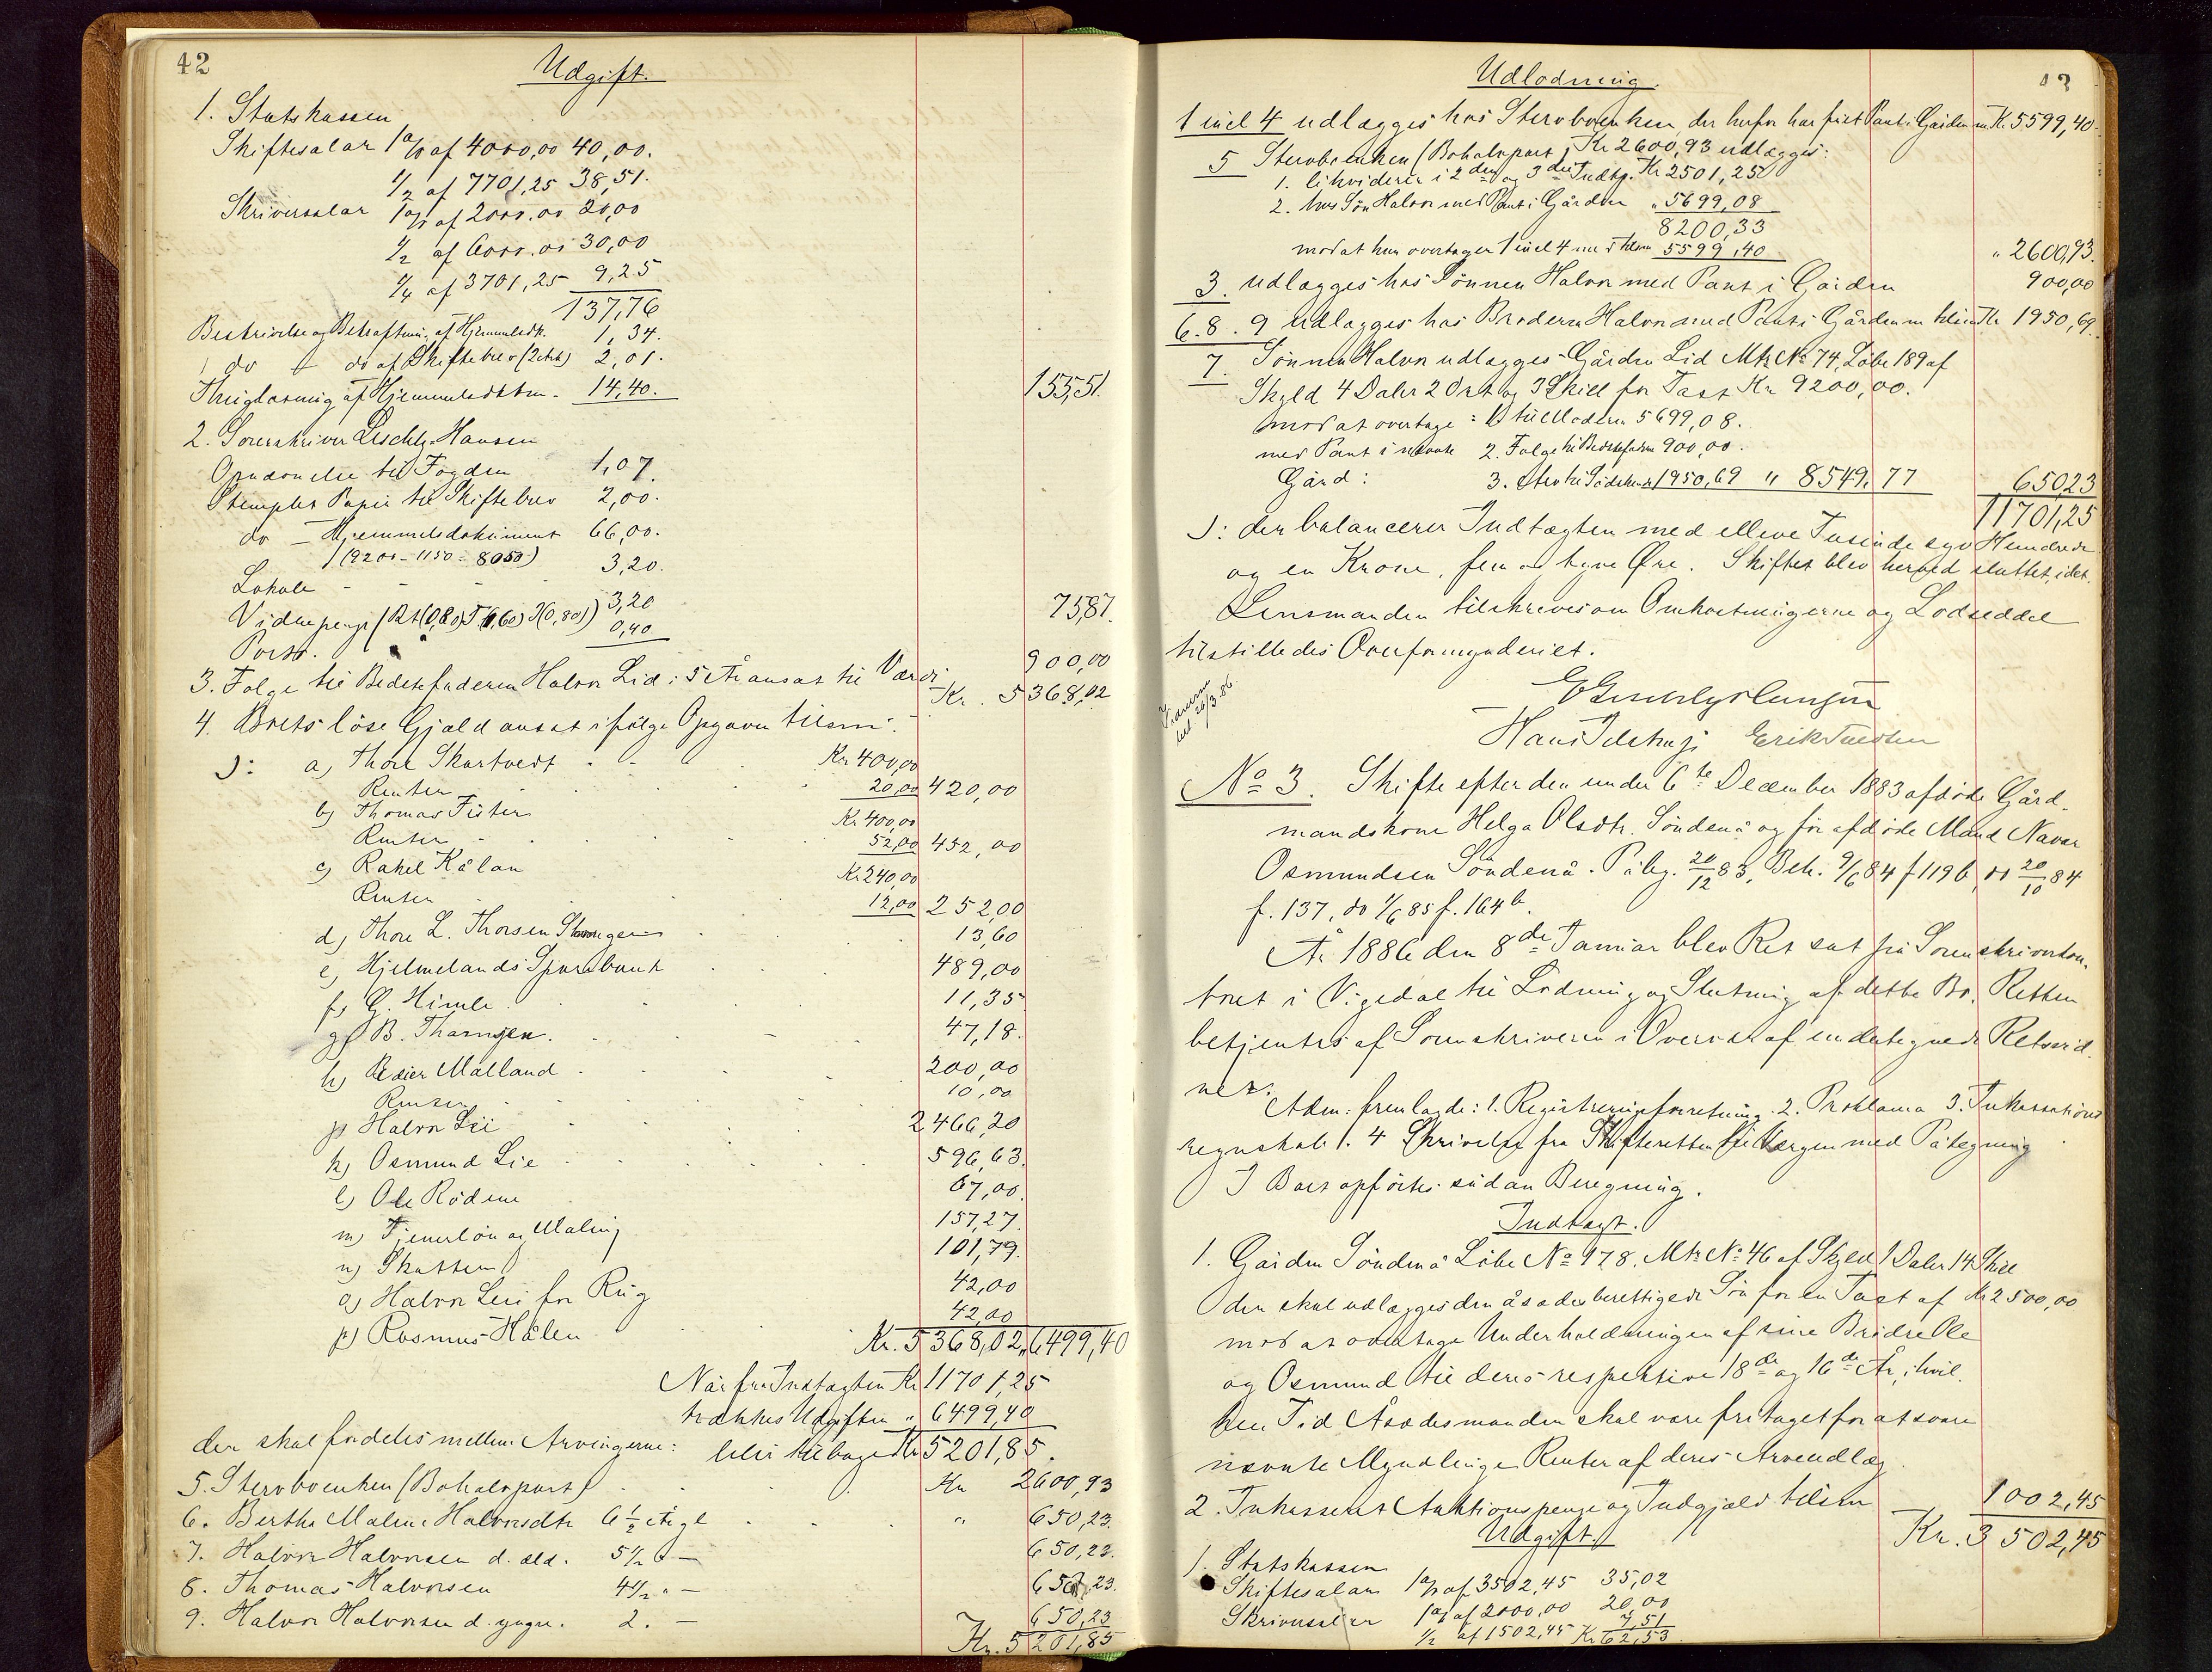 42
Udgift.
1. Statskassen
Skiftesalar 1% af 4000,00 40,00.
1/2 af 7701,25 38,51.
Skriversalar 1% af 2000.00 20,00
1/2 af 6000.00 30,00
1/4 af 3701,25 9,25
137,76
Beskrivelse og Bekræftning af Hjemmelsdk. 1,34.
do do af Skiftebrev (2 Ark) 2,01.
Thinglæsning af Hjemmelsdkm. 14,40. 155,51.
2. Sorenskriver Hansen
til Fogden 1,07
Stemplet Papir til Skiftebrev 2,00.
do - Hjemmelsdokument 66,00.
(9200 - 1150 = 8050)
Lokale 3,20.
Vidnepenge 3,20
Porto. 0,40 75,87.
3. Følge til Bedstefaderen Halvor Lid i 5 År ansat til Værdi 900,00
4. Boets löse Gjæld ansat ifölge Opgaven tilsm: Kr. 5368,02
ɔ: a) Thore Skartvedt Kr 400,00
Renter 20,00 420,00
b) Thomas Fister Kr 400,00
Renter 52,00 452,00
c) Rakel Kålan Kr 240,00
Renter 12,00 252,00
d) Thore L. Thorsen 13,60
e) Hjelmelands Sparebank 489,00
f) G. Himle 11,35
g) B. Thamsen. 47,18.
h) Peder Målland 200,00
Renter 10,00
j) Halvor Lie 2466,20
k) Osmund Lie 596,63.
l) Ole Rödne 67,00.
m) Tjenerlön og Maling 157,27.
n) Skatten 101,79.
o) Halvor Lie for Rug 42,00
p) Rasmus Hålen 42,00
Kr. 5368,02 6499,40
Når fra Indtægten Kr 11701,25
trækkes Udgiften " 6499,40
der skal fordeles mellem Arvingerne: blir tilbage Kr 5201,85.
5. Stervboenken (Boholvpart) Kr 2600,93
6. Bertha Malene Halvorsdtr 6 1/2 År gl " 650,23.
7. Halvor Halvorsen d. æld. 5 1/2 " - 650,23.
8. Thomas Halvorsen 4 1/2 " - 650,23.
9. Halvor Halvorsen d. yngre. 2. - 650,23
Kr. 5201,85
43
Udlodning.
1 incl 4 udlægges hos Stervboenken, der herfor har fået Pant i Gården m. Kr. 5599,40
5 Stervboenken (Boholvpart) Kr 2600,93 udlægges:
1. likviderer i 2den og 3die Indtg. Kr 2501,25
2. hos Sön Halvor med Pant i Gården " 5699,08
8200,33
mod at hun overtager 1 incl 4 med tilsm 5599,40 " 2600,93.
3. udlægges hos Sönnen Halvor med Pant i Gården 900,00
6. 8. 9 udlægges hos Broderen Halvor med Pant i Gården m. tilsm Kr 1950,69.
7. Sönnen Halvor udlægges Gården Lid Mtr No 74, Löbe 189 af
Skyld 4 Daler 2 Ort og 3 Skill for Taxt Kr 9200,00.
mod at overtage: 1 til Moderen 5699,08.
med Pant i nævnte 2. Følge til Bedstefaderen 900,00.
Gård: 3. Arv til Södskende 1950,69 " 8549,77 650,23
11701,25
ɔ: der balancerer Indtægten med elleve Tusinde syv Hundrede
og en Krone, fem og tyve Øre. Skiftet blev herved sluttet, idet
Lensmanden tilskreves om Omkostningerne og Lodseddel
tilstilledes Overformynderiet.
26/3.86
Hans Erik
No 3. Skifte efter den under 6te December 1883 afdöde Gård-
mandskone Helga Olsdtr. Söndenå og för afdöde Mand Navar
Osmundsen Söndenå. Påbeg. 20/12 83, Beh. 9/6 84 f 119 b, do 20/10 84
f. 137, do 1/6 85 f. 164 b.
År 1886 den 8de Januar blev Ret sat på Sorenskriverkon-
toret i Vigedal til Lodning og Slutning af dette Bo. Retten
betjentes af Sorenskriveren i Overvær af undertegnede Retsvid-
ner.
Adm: fremlagde: 1. Registreringsforretning. 2. Proklama 3. Inkassations
regnskab. 4 Skrivelse fra Skifteretten til Værgen med Påtegning
I Boet opførtes sådan Beregning.
Indtægt.
1. Gården Söndenå Löbe No 178. Mtr No 46 af Skyld 1 Daler 14 Skill
den skal udlægges den åsædesberettigede Sön for en Taxt af Kr 2500,00
mod at overtage Underholdningen af sine Brödre Ole
og Osmund til deres respektive 18de og 16de År, i hvil-
ken Tid Åsædesmanden skal være fritaget for at svare
nævnte Myndlinge Renter af deres Arveudlæg
2. Inkasseret Auktionspenge og Indgjæld tilsm 1002,45
Kr. 3502,45
Udgift.
1. Statskassen
Skiftesalar 1% af 3502,45 35,02
Skriversalar 1% af 2000,00 20,00
1/2 af 1502,45 7,51
Kr 62,53